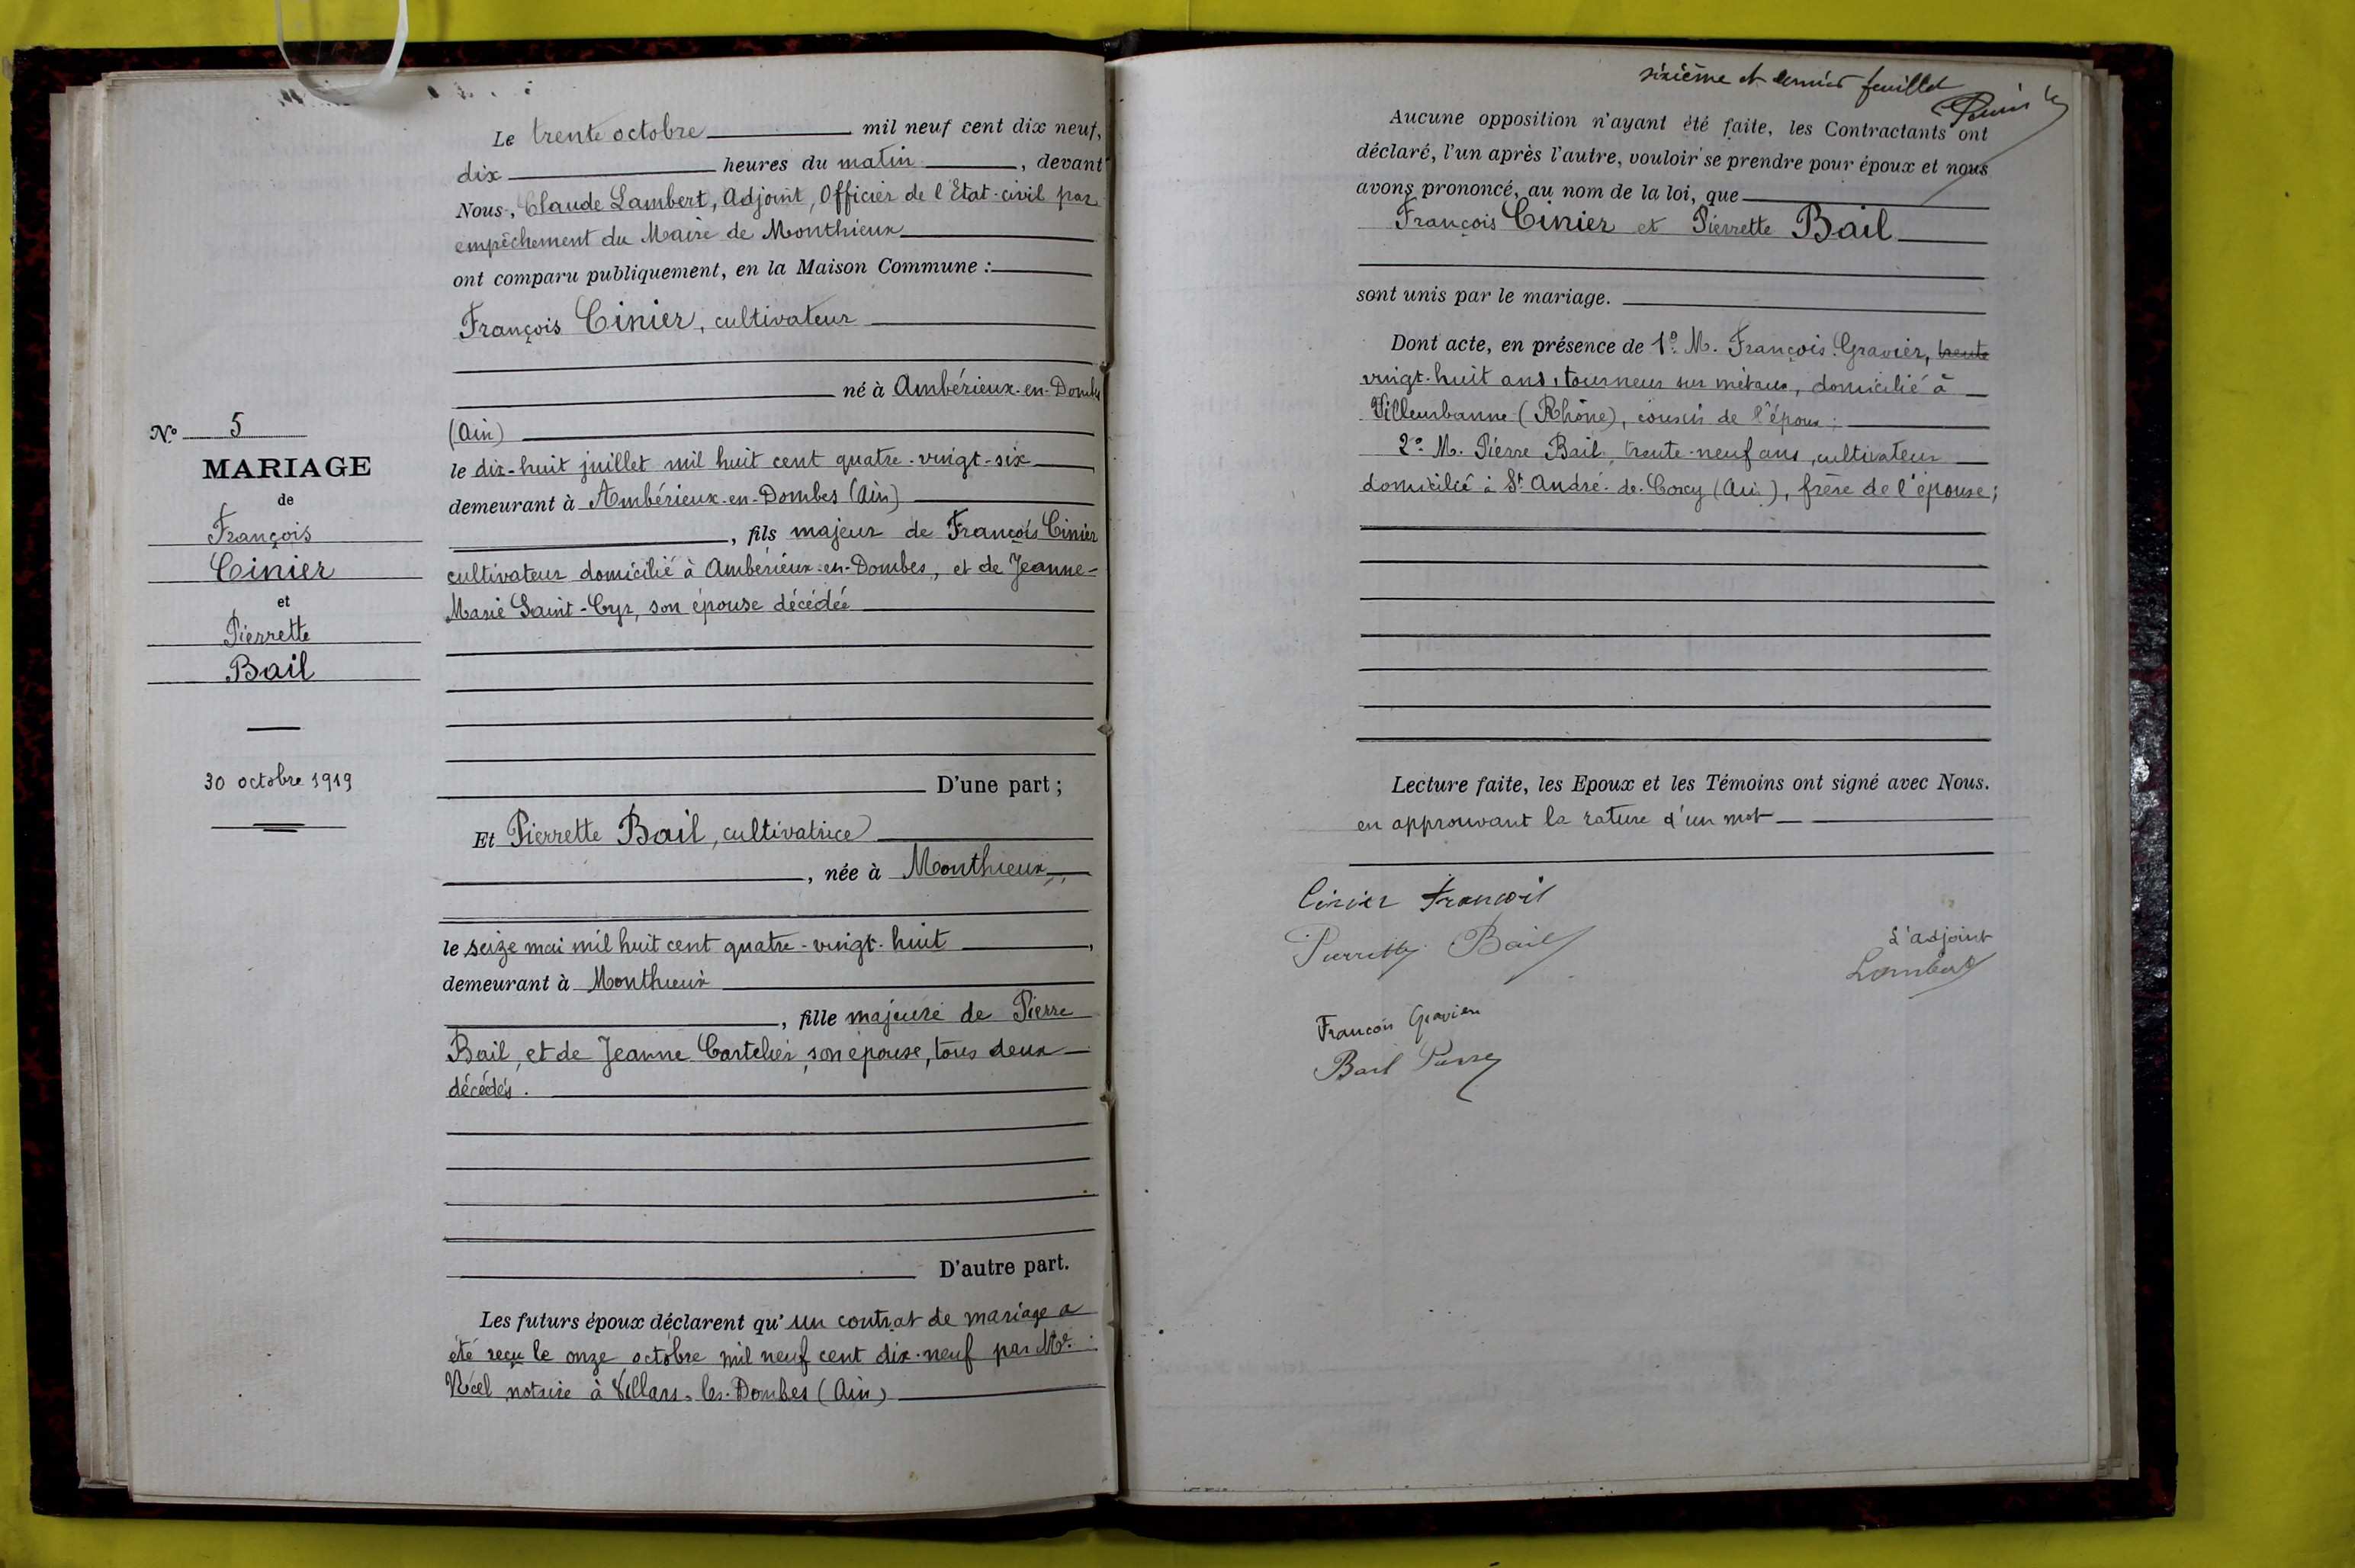 Le trente octobre mil neuf cent dix neuf,
dix heures du matin, devant
Nous, Claude Lambert, Adjoint, Officier de l'Etat-civil par
empêchement du Maire de Monthieux
ont comparu publiquement, en la Maison Commune :
François Cinier, cultivateur
né à Ambérieux-en-Dombes
(Ain)
le dix-huit juillet mil huit cent quatre-vingt-six
demeurant à Ambérieux-en-Dombes (Ain)
, fils majeur de François Cinier
cultivateur domicilié à Ambérieux-en-Dombes, et de Jeanne-
Marie Saint-Cyr, son épouse décédée
D'une part ;
Et Pierrette Bail, cultivatrice
, née à Monthieux
le seize mai mil huit cent quatre-vingt-huit,
demeurant à Monthieux
, fille majeure de Pierre
Bail, et de Jeanne Cartelier, son épouse, tous deux
décédés.
D'autre part.
Les futurs époux déclarent qu'un contrat de mariage a
été reçu le onze octobre mil neuf cent dix-neuf par Me
Noël notaire à Villars-les-Dombes (Ain)
No 5
MARIAGE
de
François
Cinier
et
Pierrette
Bail
30 octobre 1919
sixième et dernier feuillet
Aucune opposition n'ayant été faite, les Contractants ont
déclaré, l'un après l'autre, vouloir se prendre pour époux et nous
avons prononcé, au nom de la loi, que
François Cinier et Pierrette Bail
sont unis par le mariage.
Dont acte, en présence de 1o M. François Gravier, trente
vingt-huit ans, tourneur sur métaux, domicilié à
Villeurbanne (Rhône), cousin de l'époux ;
2o M. Pierre Bail, trente-neuf ans, cultivateur
domicilié à St André-de-Corcy (Ain), frère de l'épouse ;
Lecture faite, les Epoux et les Témoins ont signé avec Nous.
en approuvant la rature d'un mot
Cinier François
Pierrette Bail
L'adjoint
Lambert
François Gravier
Bail Pierre